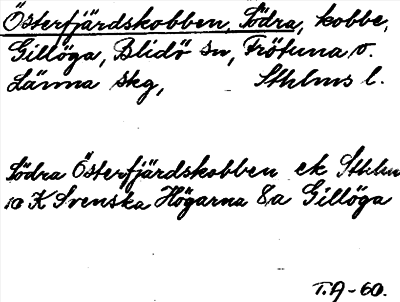 Österfjärdskobben, Södra, kobbe,
Gillöga, Blidö sn, Frötuna o.
Länna skg, Sthlms l.
Södra Österfjärdskobben ek Sthlm
10 K Svenska Högarna 8a Gillöga
T.A-60.